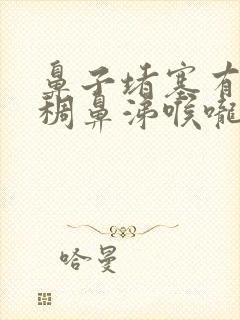 鼻子堵塞有
稠鼻涕喉嚨
哈曼